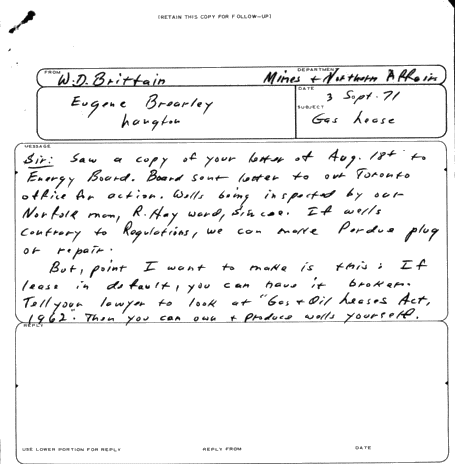 (RETAIN THIS COPY FOR FOLLOW-UP)
FROM W.D. Brittain DEPARTMENT Mines + Northern Affairs
Eugene Brearley DATE 3 Sept. 71
Langton SUBJECT Gas Lease
MESSAGE
Sir: Saw a copy of your letter of Aug. 18th to
Energy Board. Board sent letter to our Toronto
office for action. Wells being inspected by our
Norfolk man, R. Hayward, Simcoe. If wells
contrary to Regulations, we can make Perdue plug
or repair.
But, point I want to make is this: If
lease in default, you can have it broken.
Tell your lawyer to look at "Gas + Oil Leases Act,
1962". Then you can own + produce wells yourself.
REPLY
USE LOWER PORTION FOR REPLY REPLY FROM DATE